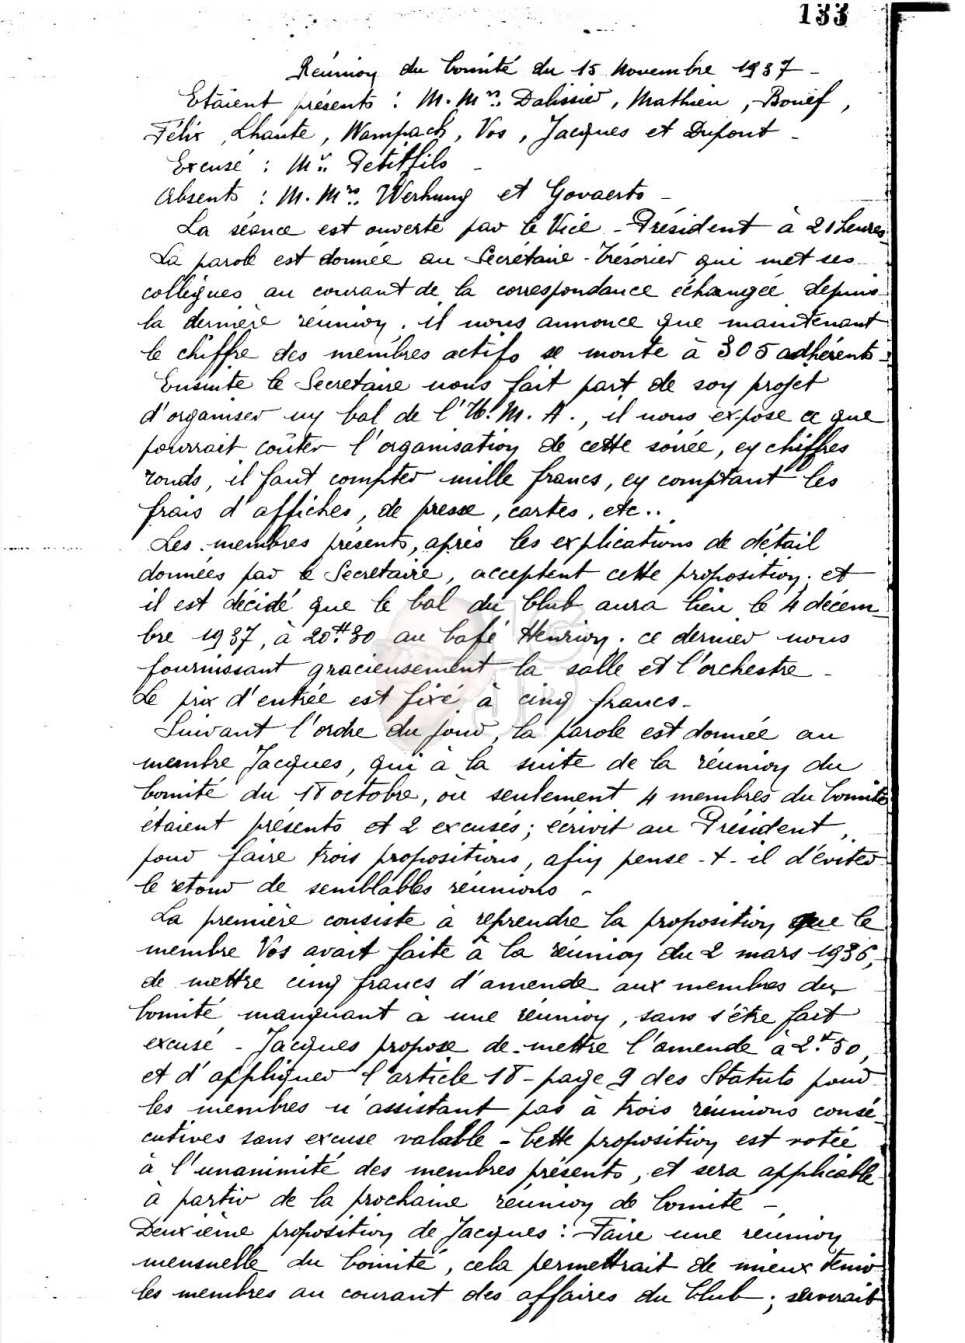 133
Réunion du Comité du 15 Novembre 1937 -
Etaient présents : M. Mrs. Dalissier, Mathieu, Bouef,
Félix, Lhante, Wampach, Vos, Jacques et Dupont -
Excusé : Mr. Petitfils -
Absents : M. Mrs. Werhung et Govaerts -
La séance est ouverte par le Vice-Président à 21 heures.
La parole est donnée au Secrétaire-Trésorier qui met ses
collègues au courant de la correspondance échangée depuis
la dernière réunion. il nous annonce que maintenant
le chiffre des membres actifs se monte à 305 adhérents -
Ensuite le Secrétaire nous fait part de son projet
d'organiser un bal de l'U.M.A., il nous expose ce que
pourrait coûter l'organisation de cette soirée, en chiffres
ronds, il faut compter mille francs, en comptant les
frais d'affiches, de presse, cartes, etc..
Les membres présents, après les explications de détail
données par le Secrétaire, acceptent cette proposition; et
il est décidé que le bal du Club aura lieu le 4 décem-
bre 1937, à 20H30 au Café Henrion. ce dernier nous
fournissant gracieusement la salle et l'orchestre -
Le prix d'entrée est fixé à cinq francs -
Suivant l'ordre du jour, la parole est donnée au
membre Jacques, qui à la suite de la réunion du
Comité du 18 octobre, où seulement 4 membres du Comité
étaient présents et 2 excusés; écrivit au Président,
pour faire trois propositions, afin pense-t-il d'éviter
le retour de semblables réunions -
La première consiste à reprendre la proposition que le
membre Vos avait faite à la réunion du 2 mars 1936,
de mettre cinq francs d'amende aux membres du
Comité manquant à une réunion, sans s'être fait
excusé - Jacques propose de mettre l'amende à 2f.50,
et d'appliquer l'article 18 - page 9 des Statuts pour
les membres n'assistant pas à trois réunions consé-
cutives sans excuse valable - Cette proposition est votée
à l'unanimité des membres présents, et sera applicable
à partir de la prochaine réunion de Comité -
Deuxième proposition de Jacques : Faire une réunion
mensuelle du Comité, cela permettrait de mieux tenir
les membres au courant des affaires du Club ; serverait